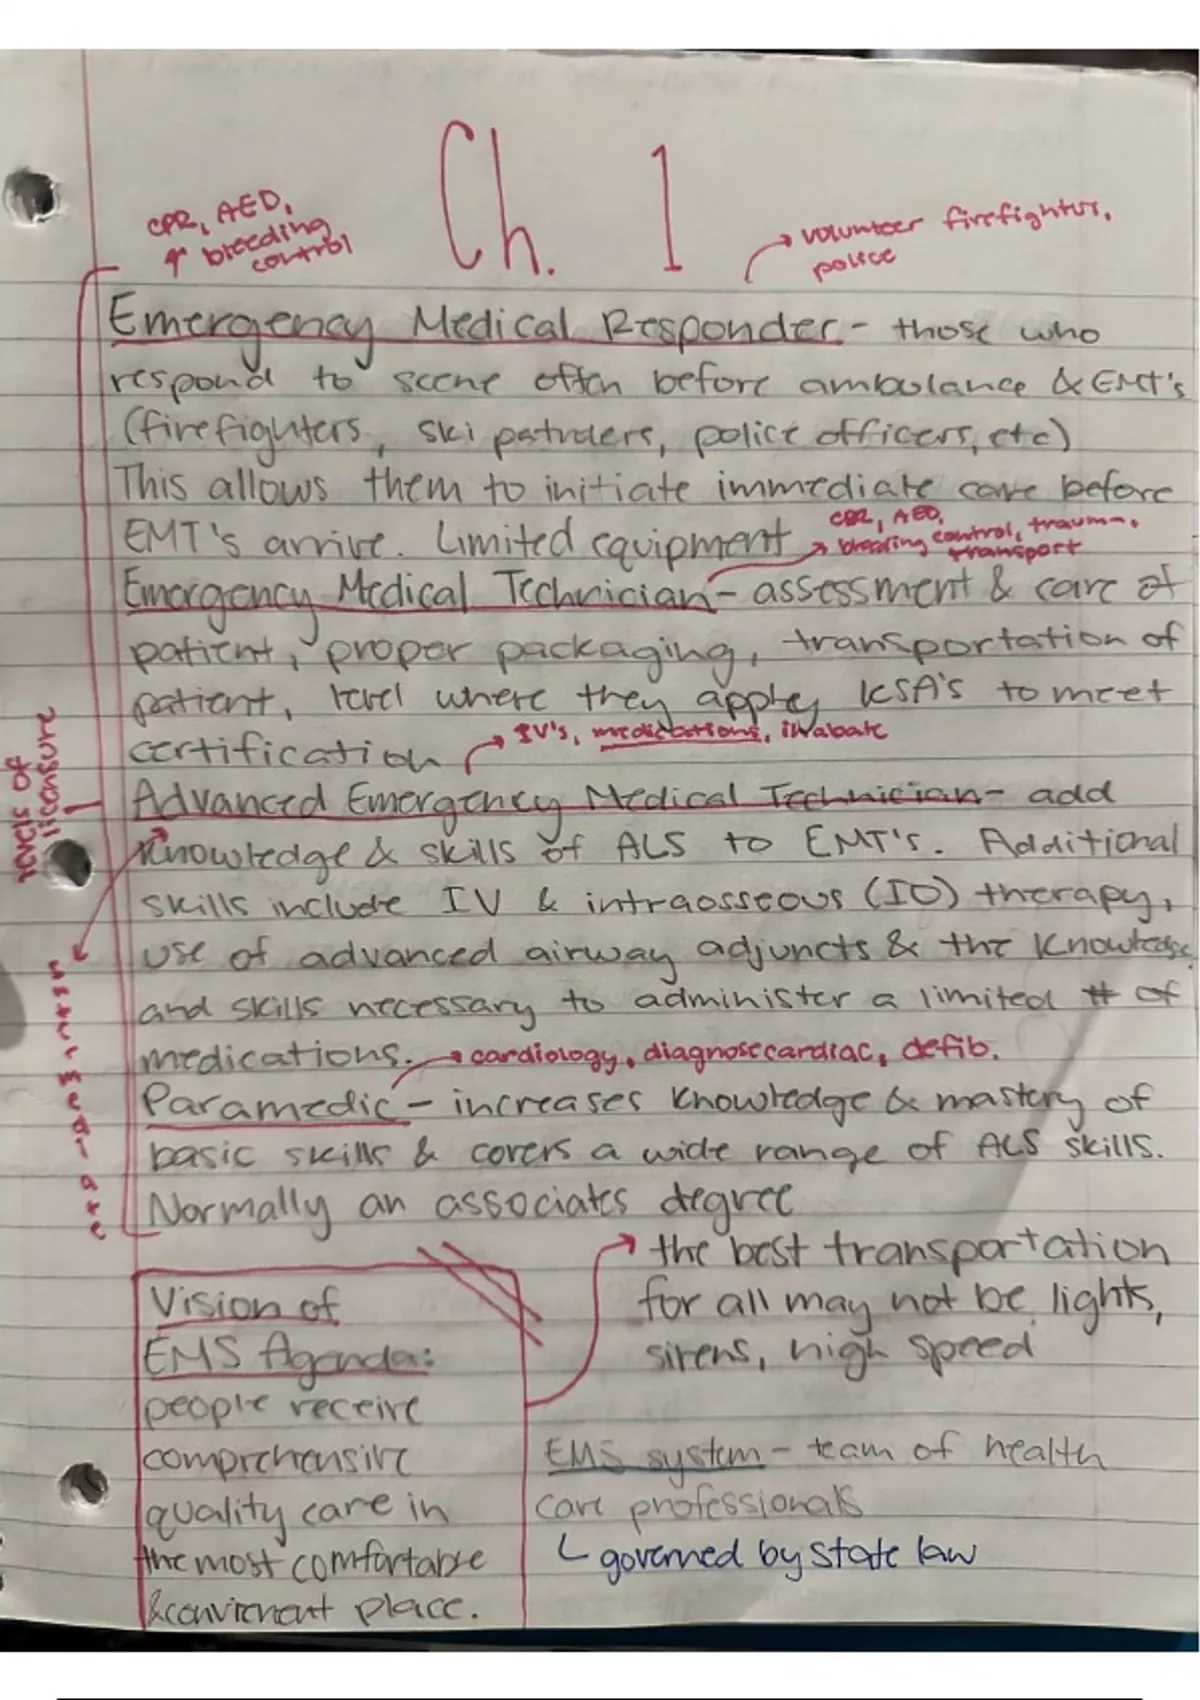 Ch. 1
CPR, AED,
bleeding
control
volunteer firefighters,
police
Emergency Medical Responder - those who
respond to scene often before ambulance & EMT's
(firefighters, ski patrolers, police officers, etc)
This allows them to initiate immediate care before
EMT's arrive. Limited equipment
CPR, AED,
bleeding control, trauma,
transport
Emergency Medical Technician - assessment & care of
patient, proper packaging, transportation of
patient, level where they apply KSA's to meet
certification
IV's, medications, inubate
Advanced Emergency Medical Technician - add
knowledge & skills of ALS to EMT's. Additional
skills include IV & intraosseous (IO) therapy,
use of advanced airway adjuncts & the knowledge
and skills necessary to administer a limited # of
medications.
cardiology, diagnose cardiac, defib.
Paramedic - increases knowledge & mastery of
basic skills & covers a wide range of ALS skills.
Normally an associates degree
levels of
licensure
Vision of
EMS Agenda:
people receive
comprehensive
quality care in
the most comfortable
& convienent place.
the best transportation
for all may not be lights,
sirens, high speed
EMS system - team of health
care professionals
governed by state law